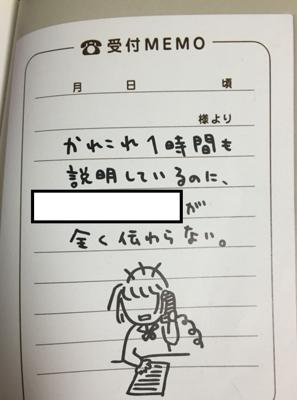 ☎受付MEMO
月 日 頃
様より
かれこれ1時間も
説明しているのに、
が
全く伝わらない。